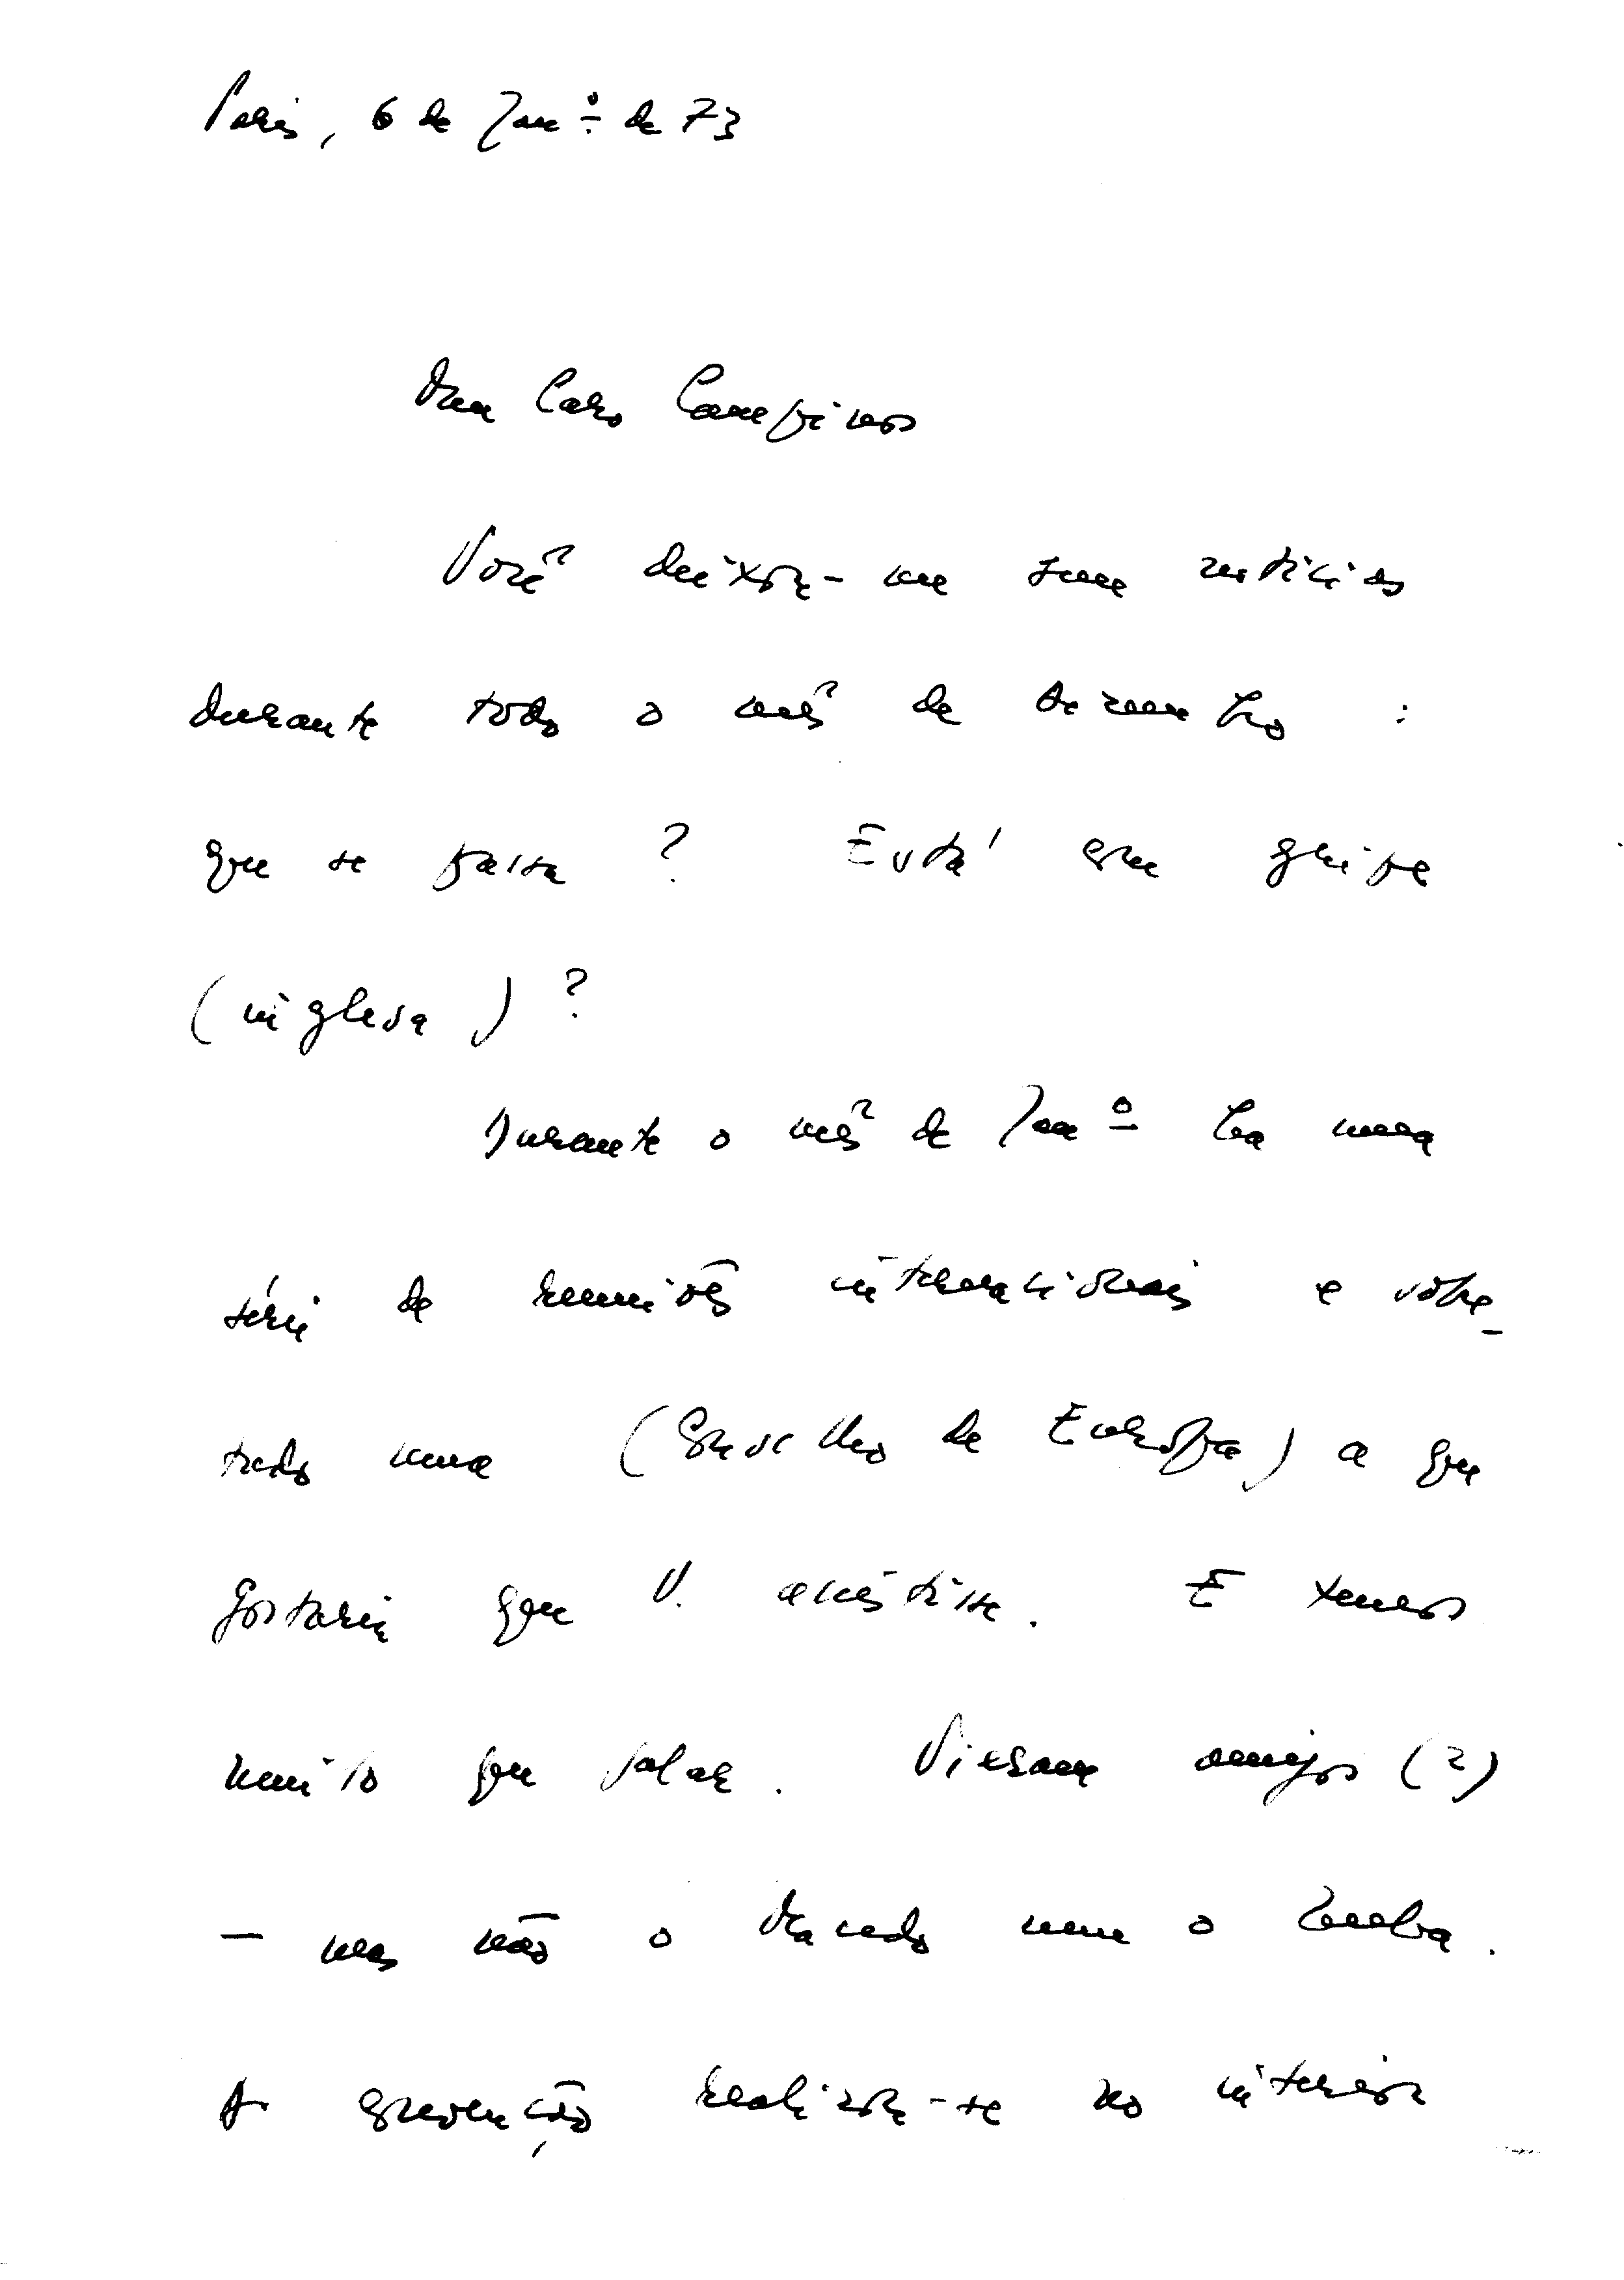 Paris, 6 de Janº de 73
Meu Caro Campinos
Você deixou-me sem notícias
durante todo o mês de dezembro :
que se passa ? Está com gripe
(inglesa) ?
Durante o mês de Janº há uma
série de reuniões internacionais e sobre-
tudo uma (Conselho da Europa) a que
gostaria que V. assistisse. E temos
muito que falar. Vieram amigos (2)
— mas não o Macedo nem o Zenha.
A convenção realizou-se no interior